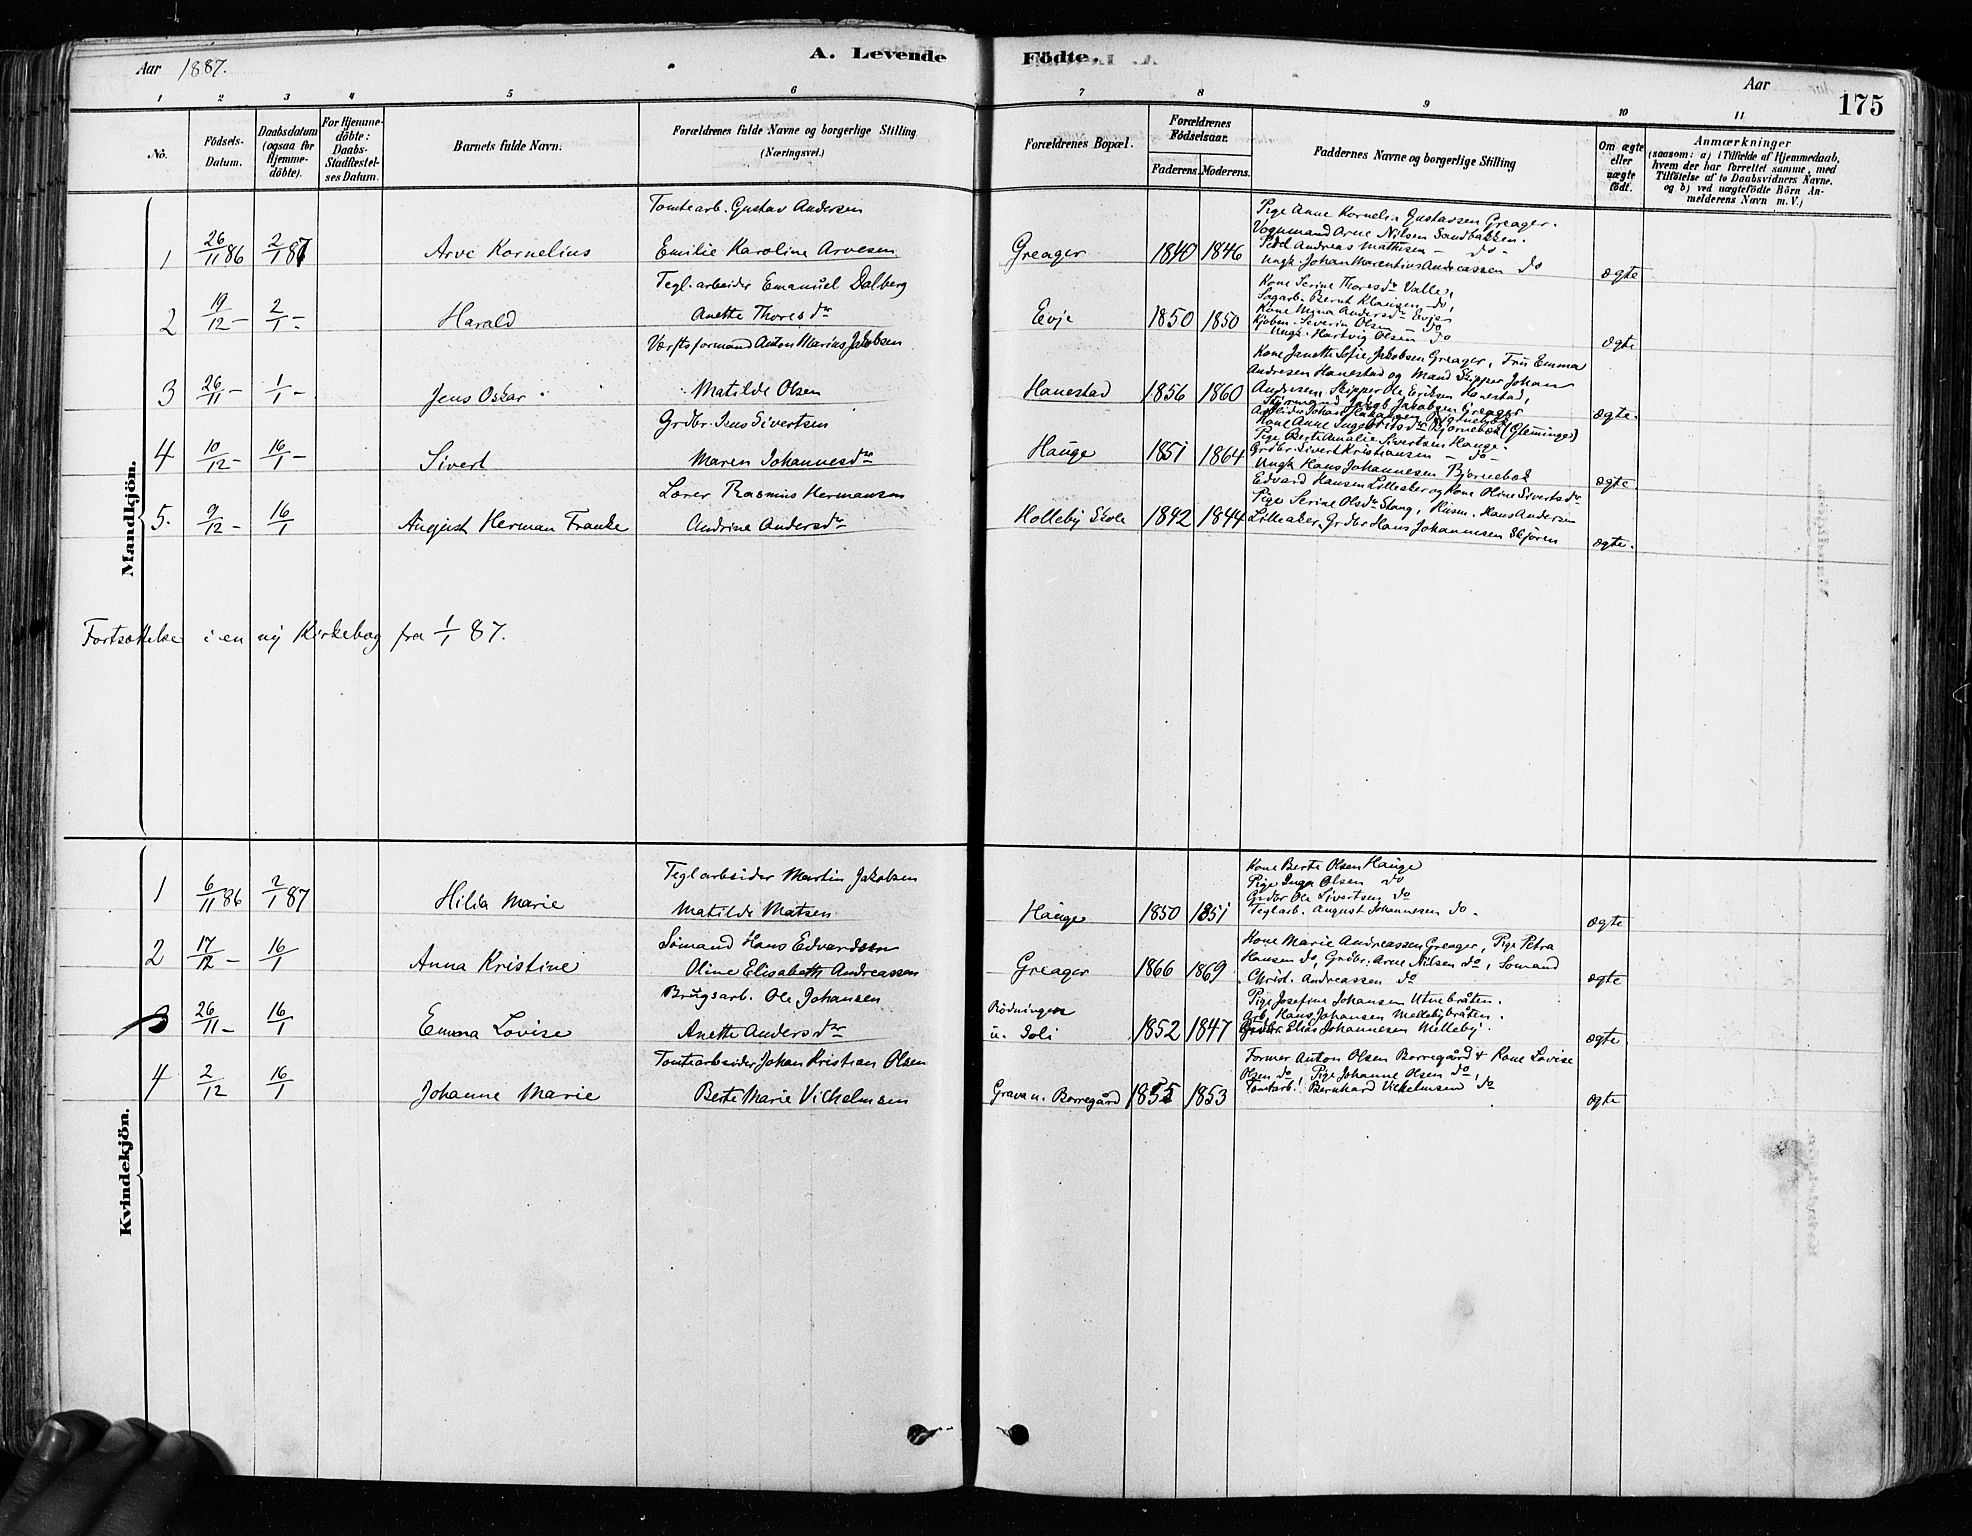 Aar 1887. A. Levende Födte. Aar 175
1 2 3 4 5 6 7 8 9 10 11
No.
Födsels-Datum.
Daabsdatum (ogsaa for Hjemme-döbte).
For Hjemme-döbte: Daabs-Stadfæstel-ses Datum.
Barnets fulde Navn.
Forældrenes fulde Navne og borgerlige Stilling (Næringsvei.)
Forældrenes Bopæl.
Forældrenes Födselsaar.
Faderens. Moderens.
Faddernes Navne og borgerlige Stilling
Om ægte eller uægte födt.
Anmærkninger
(saasom: a) i Tilfælde af Hjemmedaab, hvem der har forrettet samme, med Tilföielse af to Daabsvidners Navne. og b) ved uægtefödte Börn An-melderens Navn m. V.)
Mandkjön.
1 26/11 86 2/1 87 Arve Kornelius
Tomtearb. Gustav Andersen
Emilie Karoline Arvesen
Greager 1840 1846
Pige Anne Kornelia Gustavsen Greager.
Vognmand Arne Nilsen Sandbakken.
Pedl Andreas Mathisen - do -
Ungk. Johan Marentius Andreassen do
ægte
2 19/12 - 2/1 - Harald
Tegl. arbeider Emanuel Dalberg
Anette Thoresdr
Evje 1850 1850
Kone Serine Thoresdr Valle,
Sagarb. Bernt Klausen do,
Kone Mina Andersdr Evje
Kjøbm. Severin Olsen - do
Ungk. Hartvig Olsen do
ægte
3 26/11 - 1/1 - Jens Oskar
Værftsformand Anton Marius Jakobsen
Matilde Olsen
Hanestad 1856 1860
Kone Janette Sofie Jakobsen Greager, Fru Emma
Andresen Hanestad og Mand Skipper Johan
Andresen, Skipper Ole Eriksen Hanestad,
Styrmand Jakob Jakobsen Greager
ægte.
4 10/12 - 16/1 - Sivert
Grdbr. Jens Sivertsen
Maren Johannesdr
Hauge 1851 1864
Kone Anne Ingebritsdr Bjørnebæk (Glemminge)
Pige Berte Amalie Sivertsen Hauge.
Grdbr. Sivert Kristiansen - do -
Ungk Hans Johannesen Bjørnebæk
ægte
5. 9/12 - 16/1 August Herman Franke
Lærer Rasmus Hermansen
Andrine Andersdr
Holleby Skole 1842 1844
Edvard Hansen Lilleaker og Kone Oline Sivertsdr
Pige Serine Olsdr Stang, Husm. Hans Andersen
Lilleaker. Grdbr Hans Johannesen Skjøren
ægte.
Fortsættelse i en ny Kirkebog fra 1/1 87.
Kvindekjön.
1 6/11 86 2/1 87 Hilda Marie
Teglarbeider Martin Jakobsen
Matilde Matsen
Hauge 1850 1851
Kone Berte Olsen Hauge
Pige Inga Olsen do
Grdbr Ole Sivertsen do
Teglarb. August Johannesen do.
ægte
2 17/12 - 16/1 Anna Kristine
Sømand Hans Edvardsen
Oline Elisabeth Andreassen
Greager 1866 1869
Kone Marie Andreassen Greager, Pige Petra
Hansen do, Grdbr. Arne Nilsen do, Sømand
Christ. Andreassen do
ægte
3 26/11 - 16/1 Emma Lovise
Brugsarb. Ole Johansen
Anette Andersdr
Rødningen
u. Soli 1852 1847
Pige Josefine Johansen Utnebråten.
Arb. Hans Johansen Mellebybråten.
Grdbr. Elias Johannesen Melleby.
ægte
4 2/12 16/1 Johanne Marie
Tomtearbeider Johan Kristian Olsen
Berte Marie Vilhelmsen
Grava u. Borregård 1855 1853
Former Anton Olsen Borregård & Kone Lovise
Olsen do, Pige Johanne Olsen do,
Tomtarb. Bernhard Vilhelmsen do
ægte